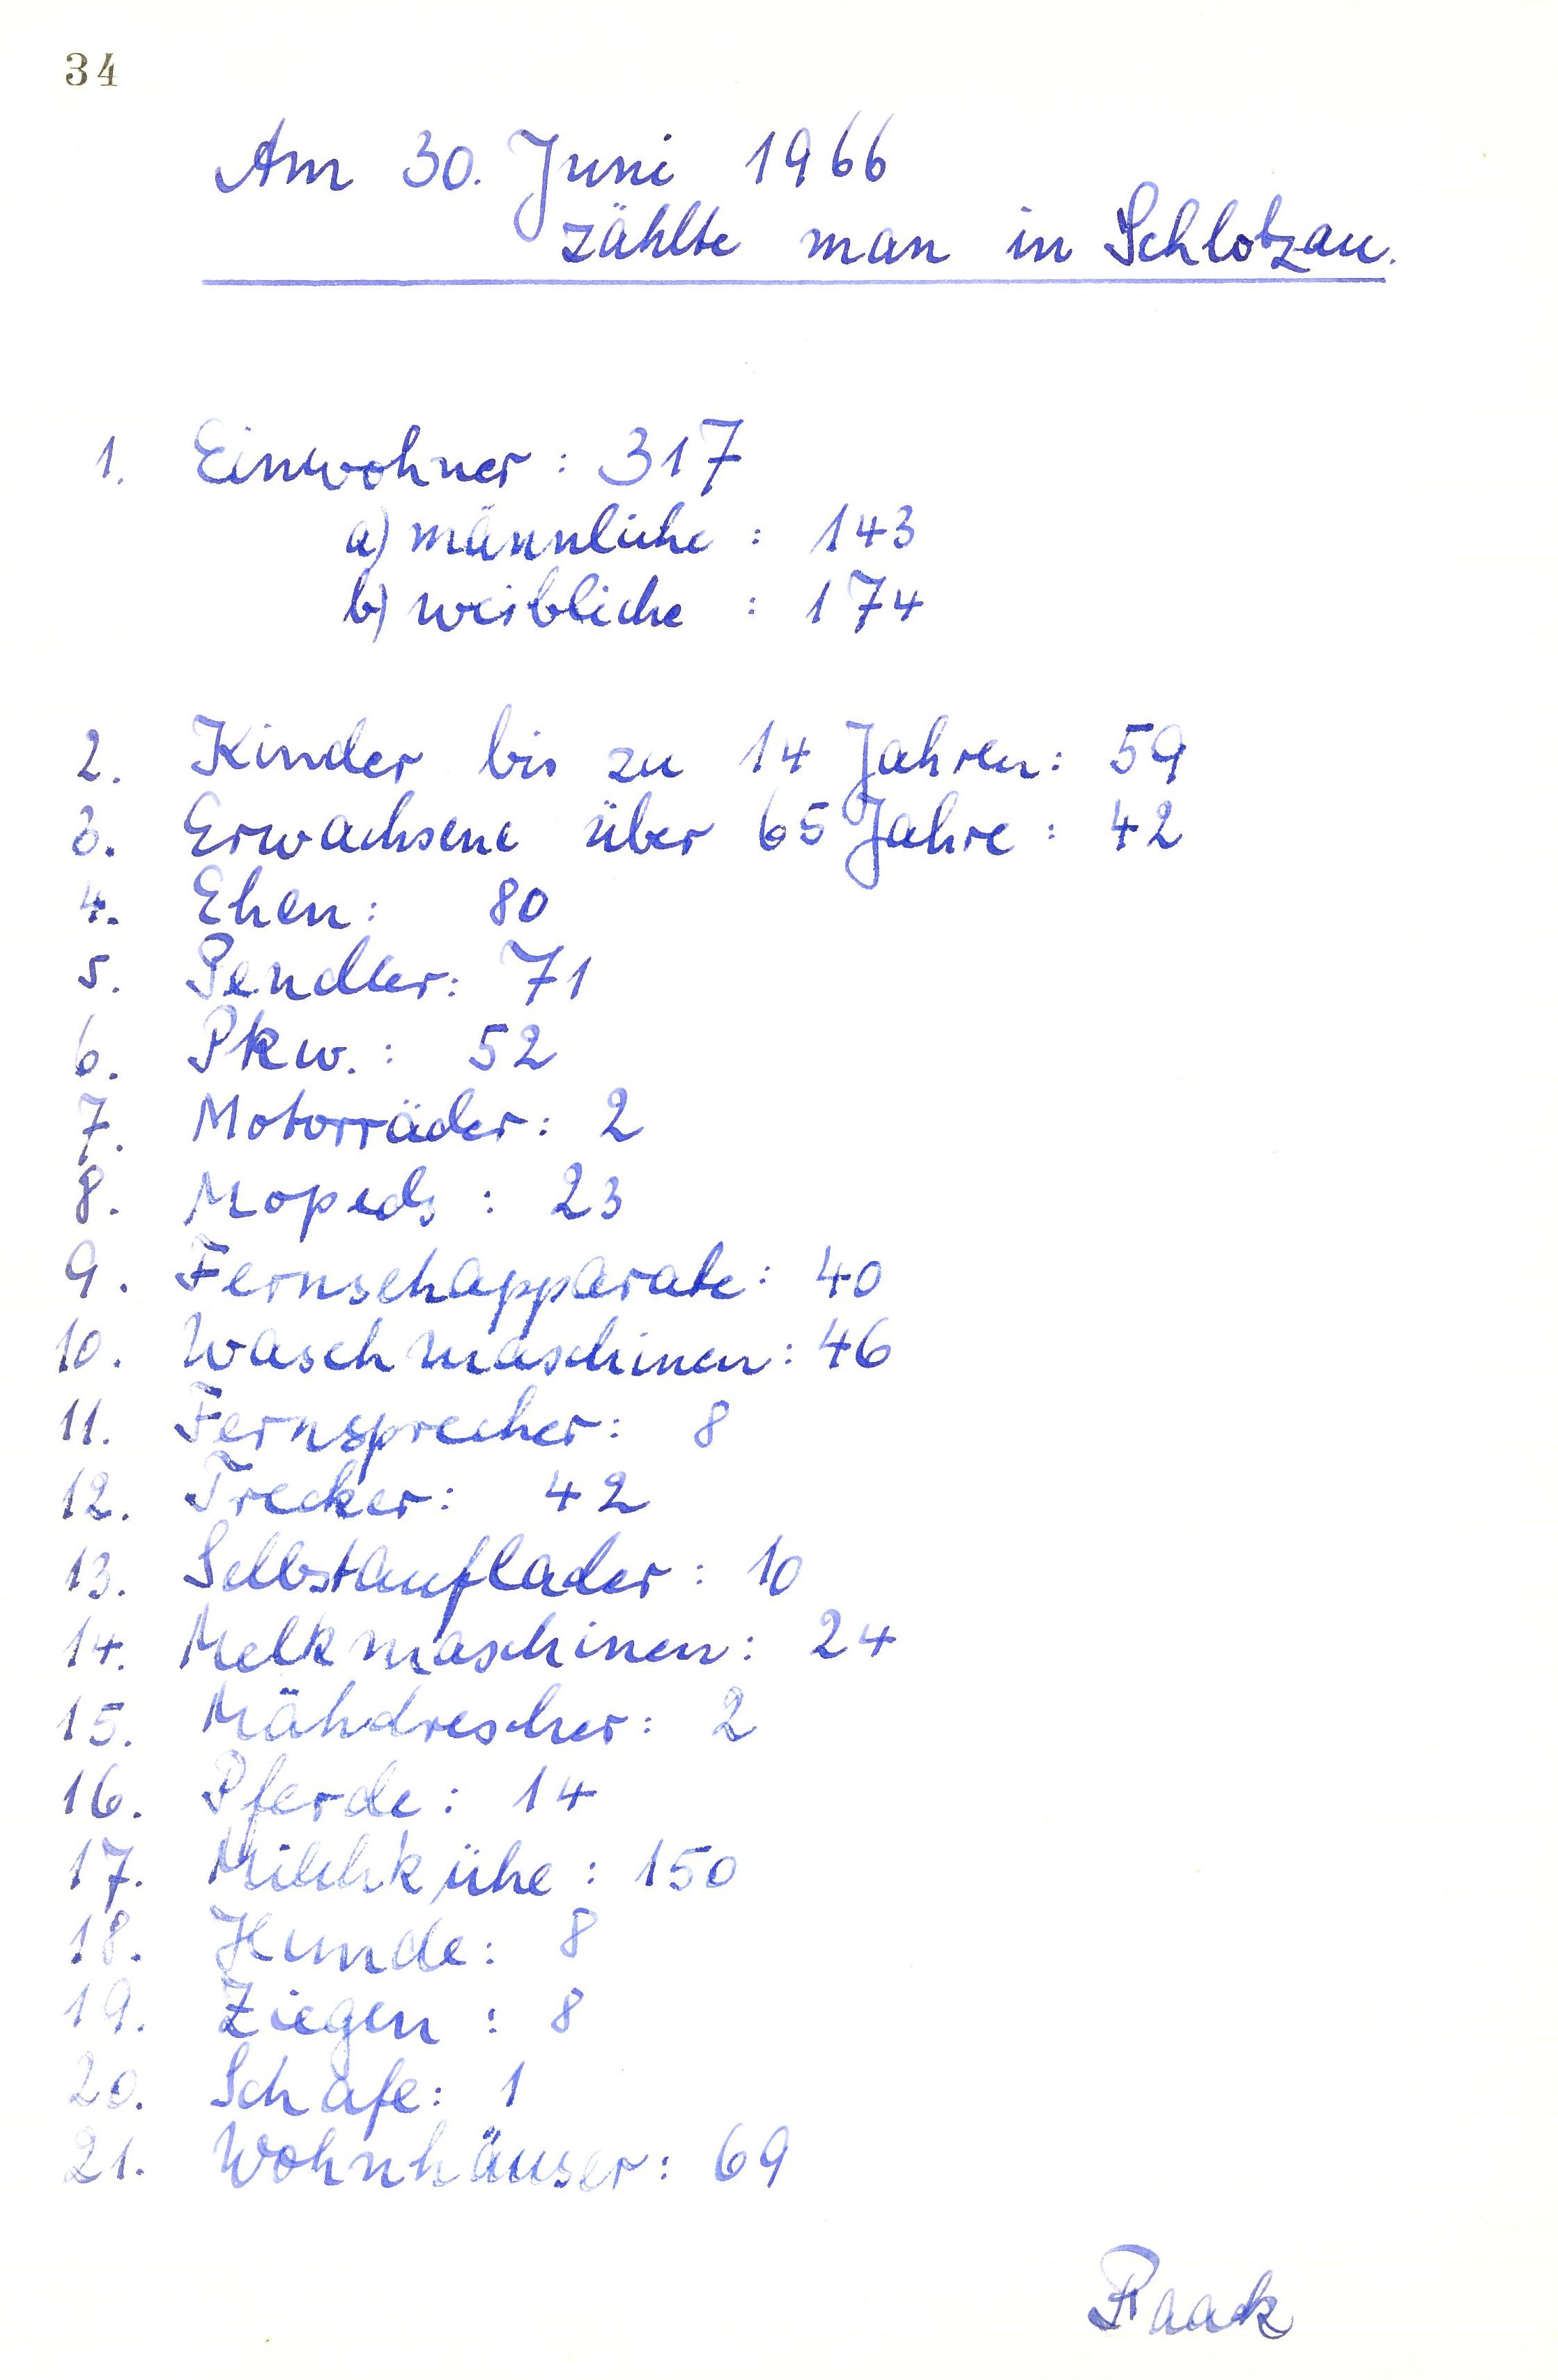 34
Am 30. Juni 1966
zählte man in Schlotzau.
1. Einwohner : 317
a) männliche : 143
b) weibliche : 174
2. Kinder bis zu 14 Jahren: 59
3. Erwachsene über 65 Jahre : 42
4. Ehen: 80
5. Pendler: 71
6. Pkw. : 52
7. Motorräder: 2
8. Mopeds : 23
9. Fernsehapparate: 40
10. Waschmaschinen: 46
11. Fernsprecher: 8
12. Trecker: 42
13. Selbstauflader : 10
14. Melkmaschinen: 24
15. Mähdrescher: 2
16. Pferde: 14
17. Milchkühe : 150
18. Hunde: 8
19. Ziegen : 8
20. Schafe: 1
21. Wohnhäuser: 69